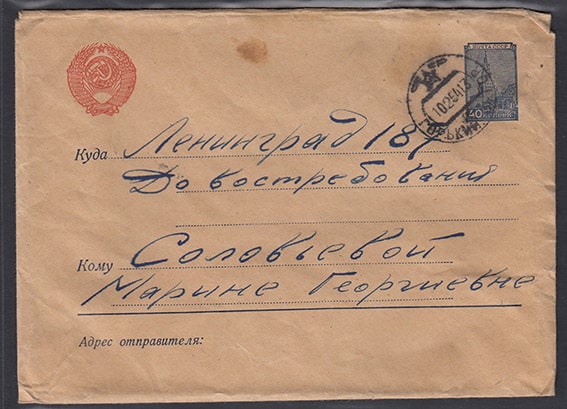 ПОЧТА СССР
40 КОПЕЕК
10254113
ГОРЬКИЙ
Куда Ленинград 187
До востребования
Кому Соловьевой
Марине Георгиевне
Адрес отправителя: